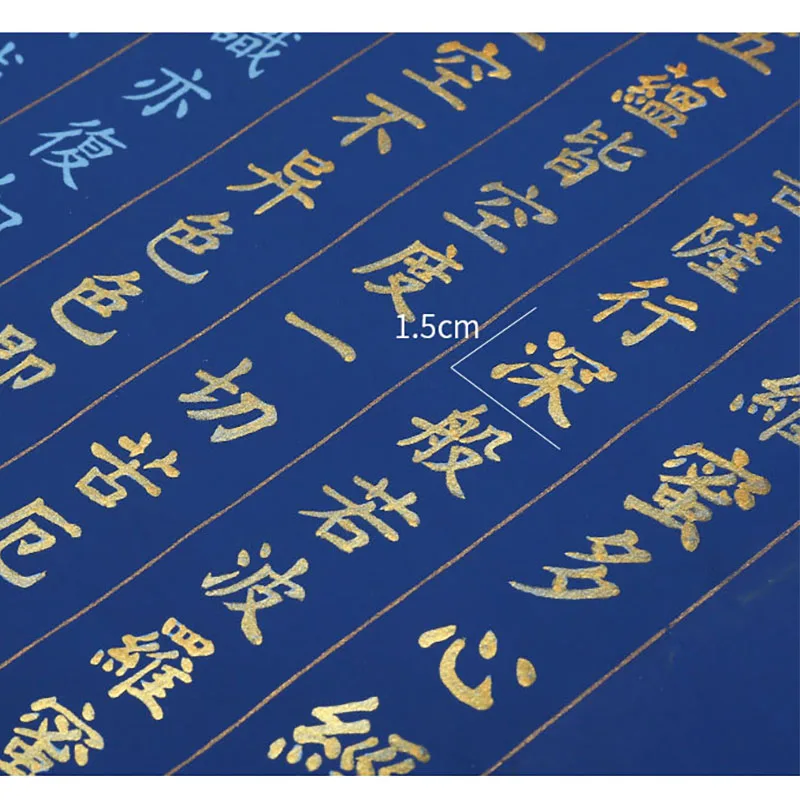 羅蜜多心經
菩薩行深般若波羅蜜
五蘊皆空度一切苦厄
空不异色色即
識亦復如
1.5cm